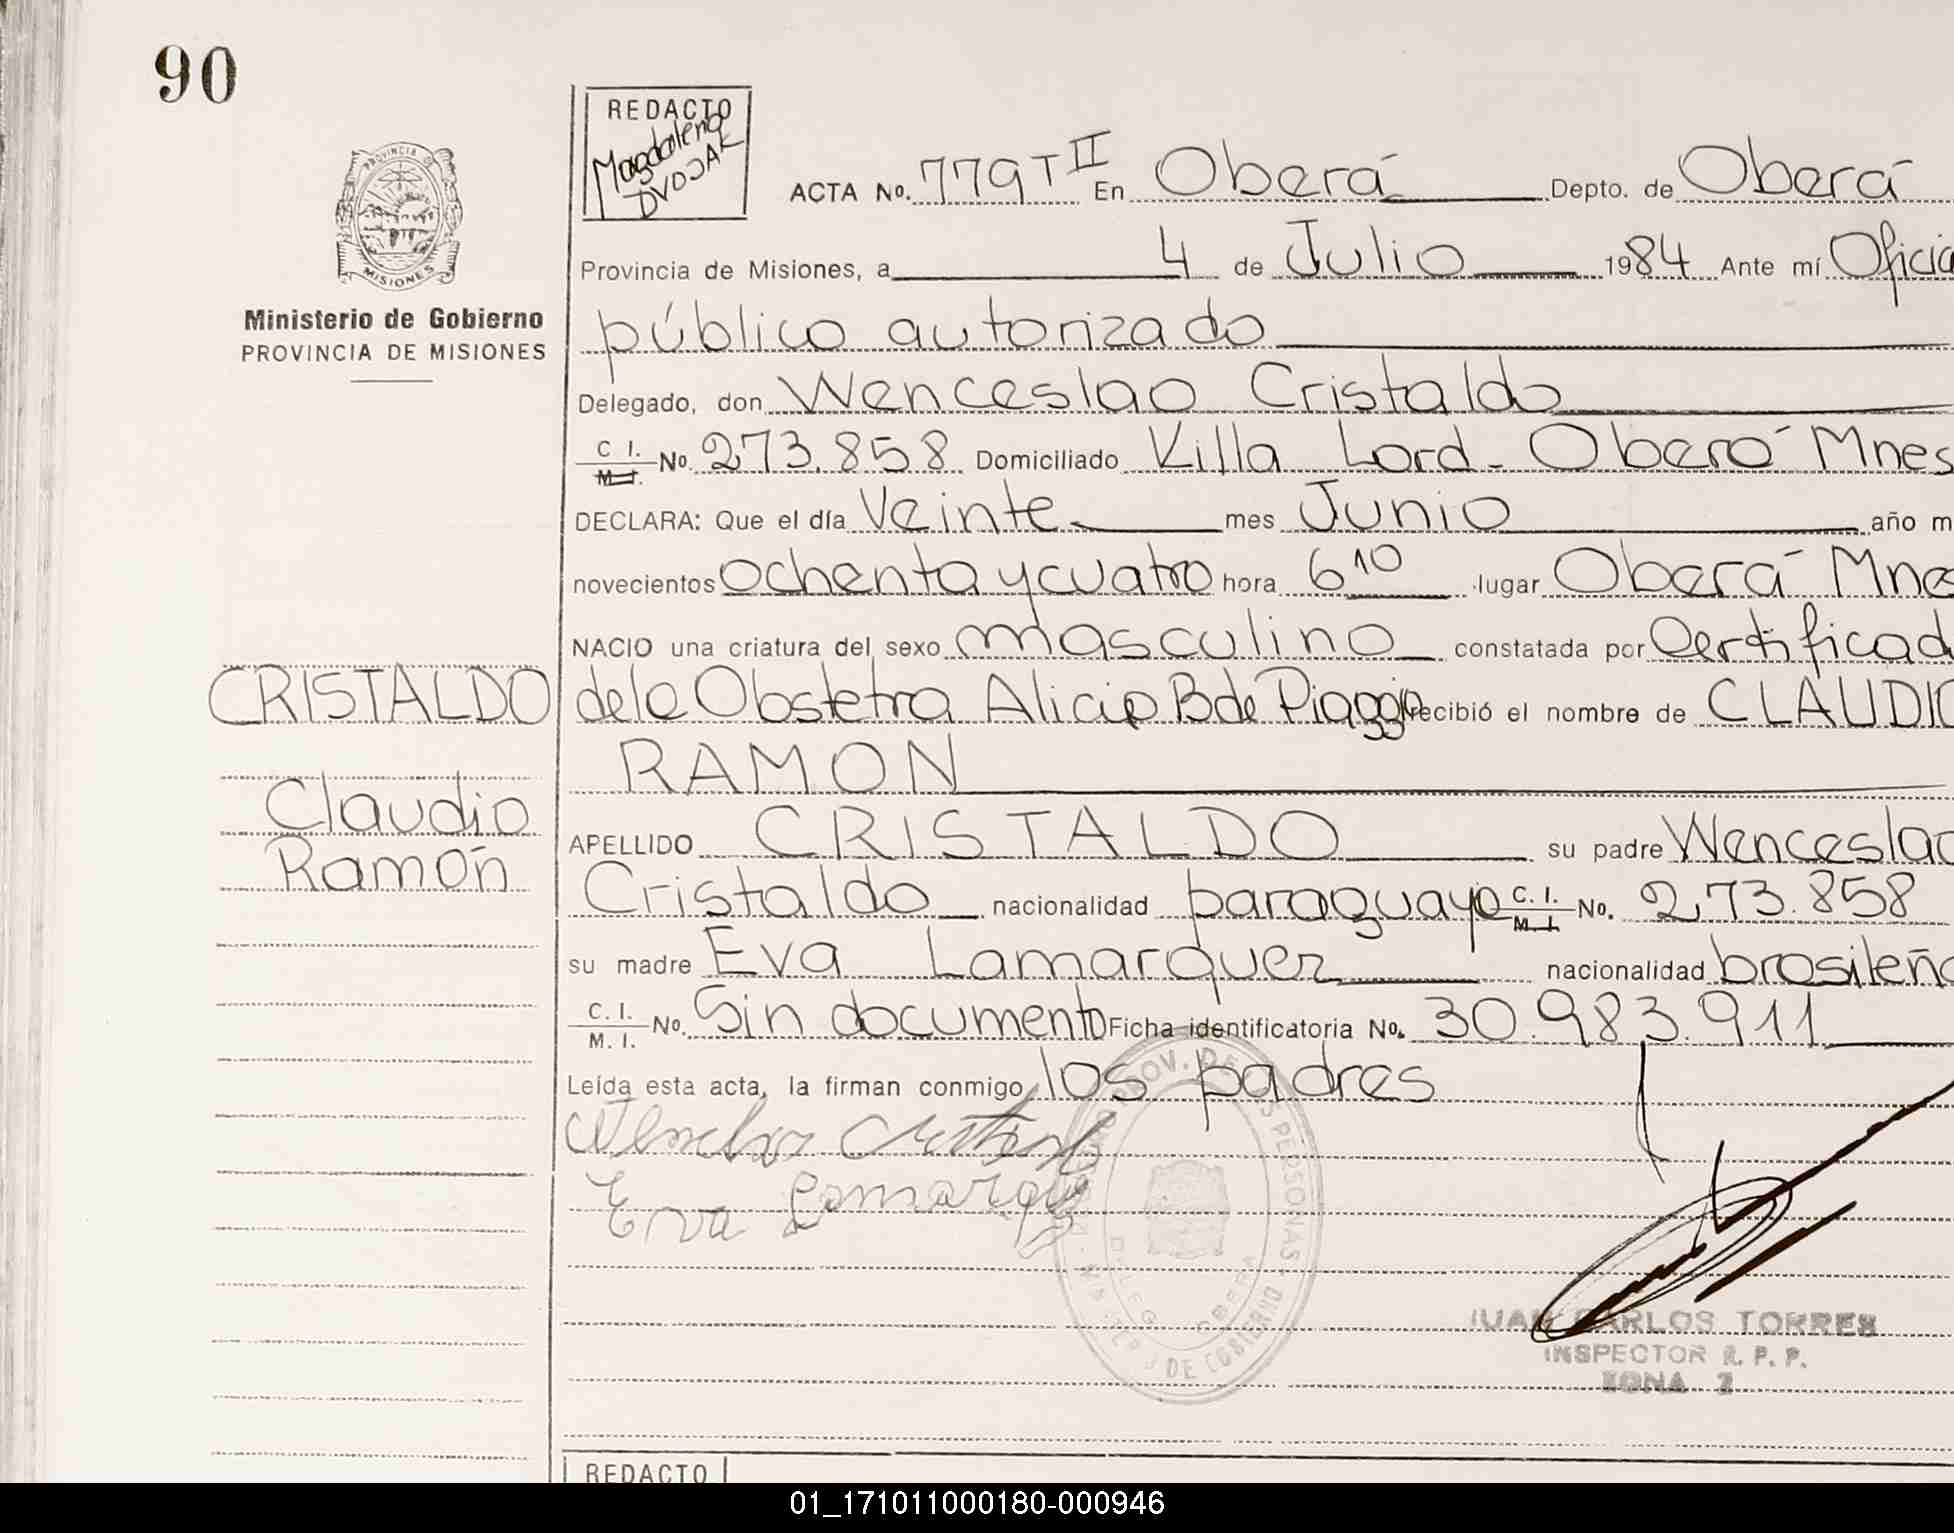 90
PROVINCIA DE
MISIONES
Ministerio de Gobierno
PROVINCIA DE MISIONES
REDACTO
Magdalena
DVOJAK
ACTA No. 779 T II En Oberá Depto. de Oberá
Provincia de Misiones, a 4 de Julio 1984 Ante mí Oficia
público autorizado
Delegado, don Wenceslao Cristaldo
C I. M I. No. 273.858 Domiciliado Villa Lord - Oberá Mnes
DECLARA: Que el día Veinte mes Junio año m
novecientos Ochenta y cuatro hora 6 10 lugar Oberá Mnes
NACIO una criatura del sexo masculino constatada por Certificad
CRISTALDO
de la Obstetra Alicia B de Piaggio recibió el nombre de CLAUDIO
RAMON
Claudio
Ramón
APELLIDO CRISTALDO su padre Wenceslao
Cristaldo nacionalidad paraguayo C. I. M. I. No. 273.858
su madre Eva Lamarquez nacionalidad brasileña
C. I. M. I. No. Sin documento Ficha identificatoria No. 30.983.911
Leída esta acta, la firman conmigo los padres
Eva Lamarque
PROV. DE LAS PERSONAS
DELEG. OBERA
MINISTERIO DE GOBIERNO
JUAN CARLOS TORRES
INSPECTOR R. P. P.
ZONA 2
REDACTO
01_171011000180-000946